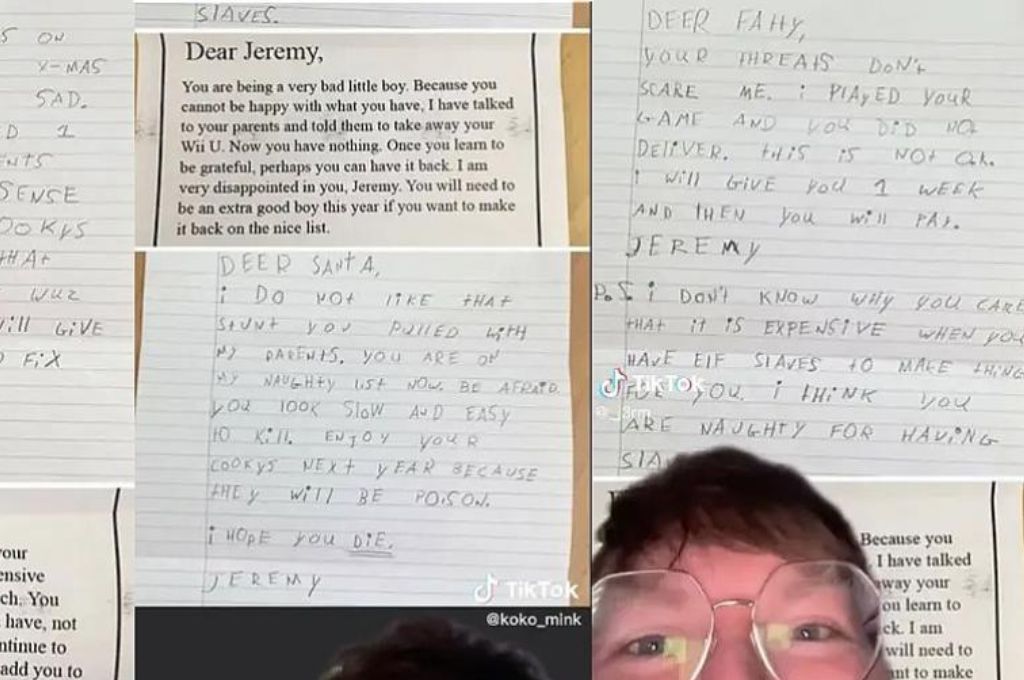 S ON
X-MAS
SAD.
D 1
ENTS
SENSE
OOKYS
THAT
WUZ
Will GIVE
O FiX
your
ensive
ch. You
have, not
ntinue to
add you to
SLAVES.
Dear Jeremy,
You are being a very bad little boy. Because you
cannot be happy with what you have, I have talked
to your parents and told them to take away your
Wii U. Now you have nothing. Once you learn to
be grateful, perhaps you can have it back. I am
very disappointed in you, Jeremy. You will need to
be an extra good boy this year if you want to make
it back on the nice list.
DEER SANTA,
i DO NOT liKE tHAt
StUNt YOU PUllED WitH
MY PARENtS. YOU ARE ON
MY NAUGHtY liSt NOW. BE AFRAiD.
YOU lOOK SlOW AND EASY
tO Kill. ENJOY YOUR
COOKYS NEXt YEAR BECAUSE
tHEY Will BE POiSON.
i HOPE YOU DiE.
JEREMY
TikTok
@koko_mink
DEER FAttY,
YOUR tHREAtS DON't
SCARE ME. i PlAYED YOUR
GAME AND YOU DiD NOt
DEliVER. tHiS iS NOt Ok.
i Will GiVE YOU 1 WEEK
AND tHEN YOU Will PAY.
JEREMY
P.S i DON't KNOW WHY YOU CARE
tHAt it iS EXPENSiVE WHEN YOU
HAVE ElF SlAVES tO MAKE tHiNG
FOR YOU. i tHiNK YOU
TikTok
ARE NAUGHtY FOR HAViNG
SlA
Because you
I have talked
away your
on learn to
ck. I am
will need to
nt to make